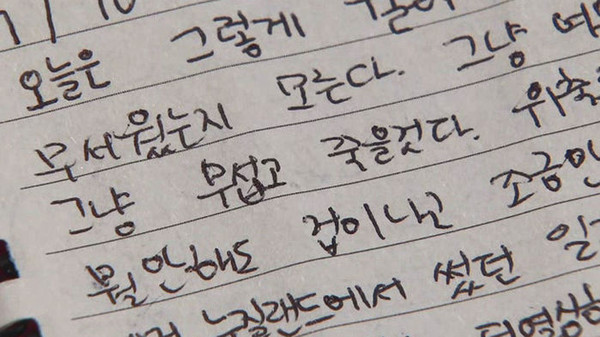 오늘은 그렇게
무서웠는지 모른다. 그냥
그냥 무섭고 죽을것다. 위축
뭘 안해도 겁이나고 조금만
뉴질랜드에서 썼던 일